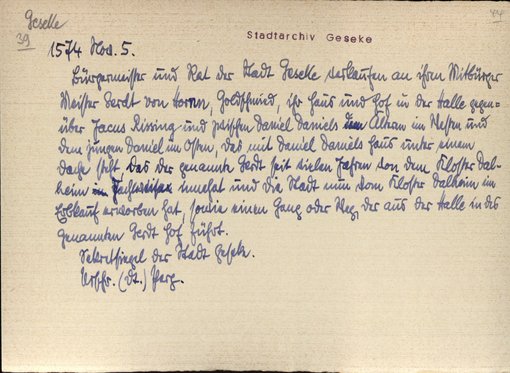 Geseke
39
44
Stadtarchiv Geseke
1574 Nov. 5.
Bürgermeister und Rat der Stadt Geseke verkaufen an ihren Mitbürger
Meister Gerdt von Hornn, Goldschmied, ihr Haus und Hof in der Halle gegen=
über Jacus Rissing und zwischen Daniel Daniels dem Älteren im Westen und
dem jungen Daniel im Osten, das mit Daniel Daniels Haus unter einem
Dache steht, das der genannte Gerdt seit vielen Jahren von dem Kloster Dal=
heim in innehat und die Stadt nun vom Kloster Dalheim im
Erbkauf erworben hat, sowie einen Gang oder Weg, der aus der Halle in des
genannten Gerdt Hof führt.
Sekretsiegel der Stadt Geseke.
Urschr. (dt.) Perg.